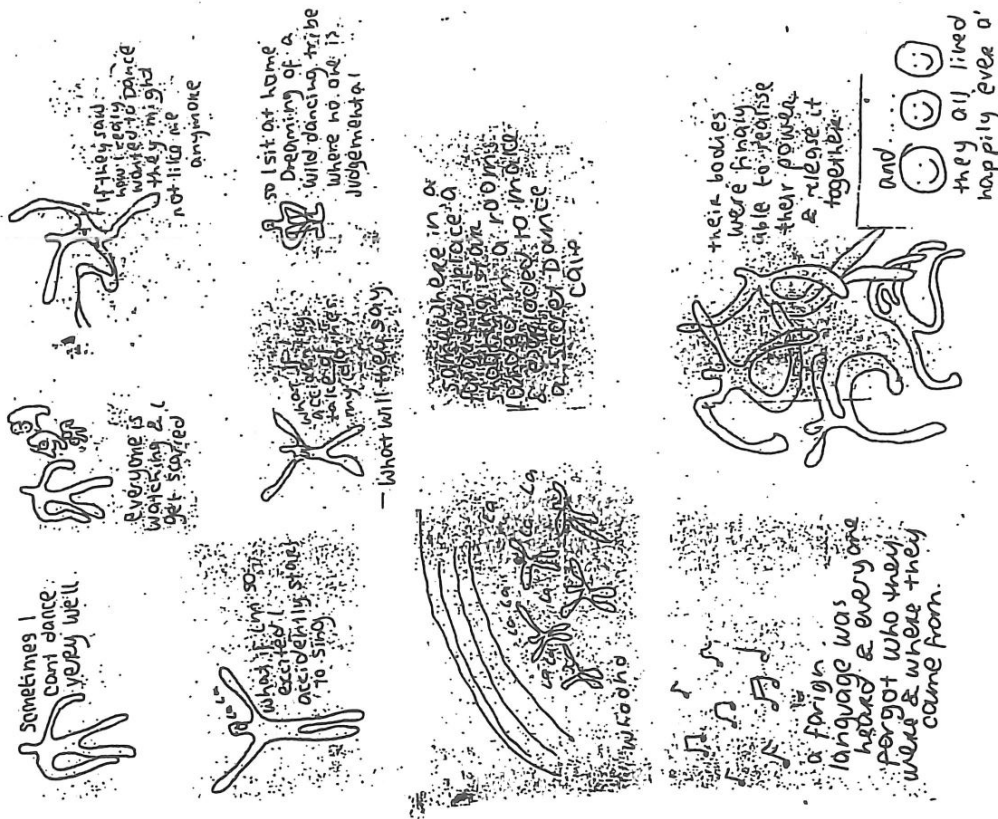 Sometimes I
cant dance
veryy we'll
everyone is
watching & I
get scarred
if they said
how I really
wanted to Dance
they might
not like me
anymore
La La La
What if I'm so
excited I
accidently start
to sing
what if I
my
– What will they say
so I sit at home
Dreaming of a
wild dancing tribe
where no one is
judgemental
La La La La La
La La La
somewhere in a
place a
shooting star
landed in a rooms
& exploded to make
a secret Dance
a farign
language was
heard & every one
forgot who they
were & where they
came from.
their bodies
were finaly
able to realise
their power
& release it
together
and....
they all lived
happily ever a'